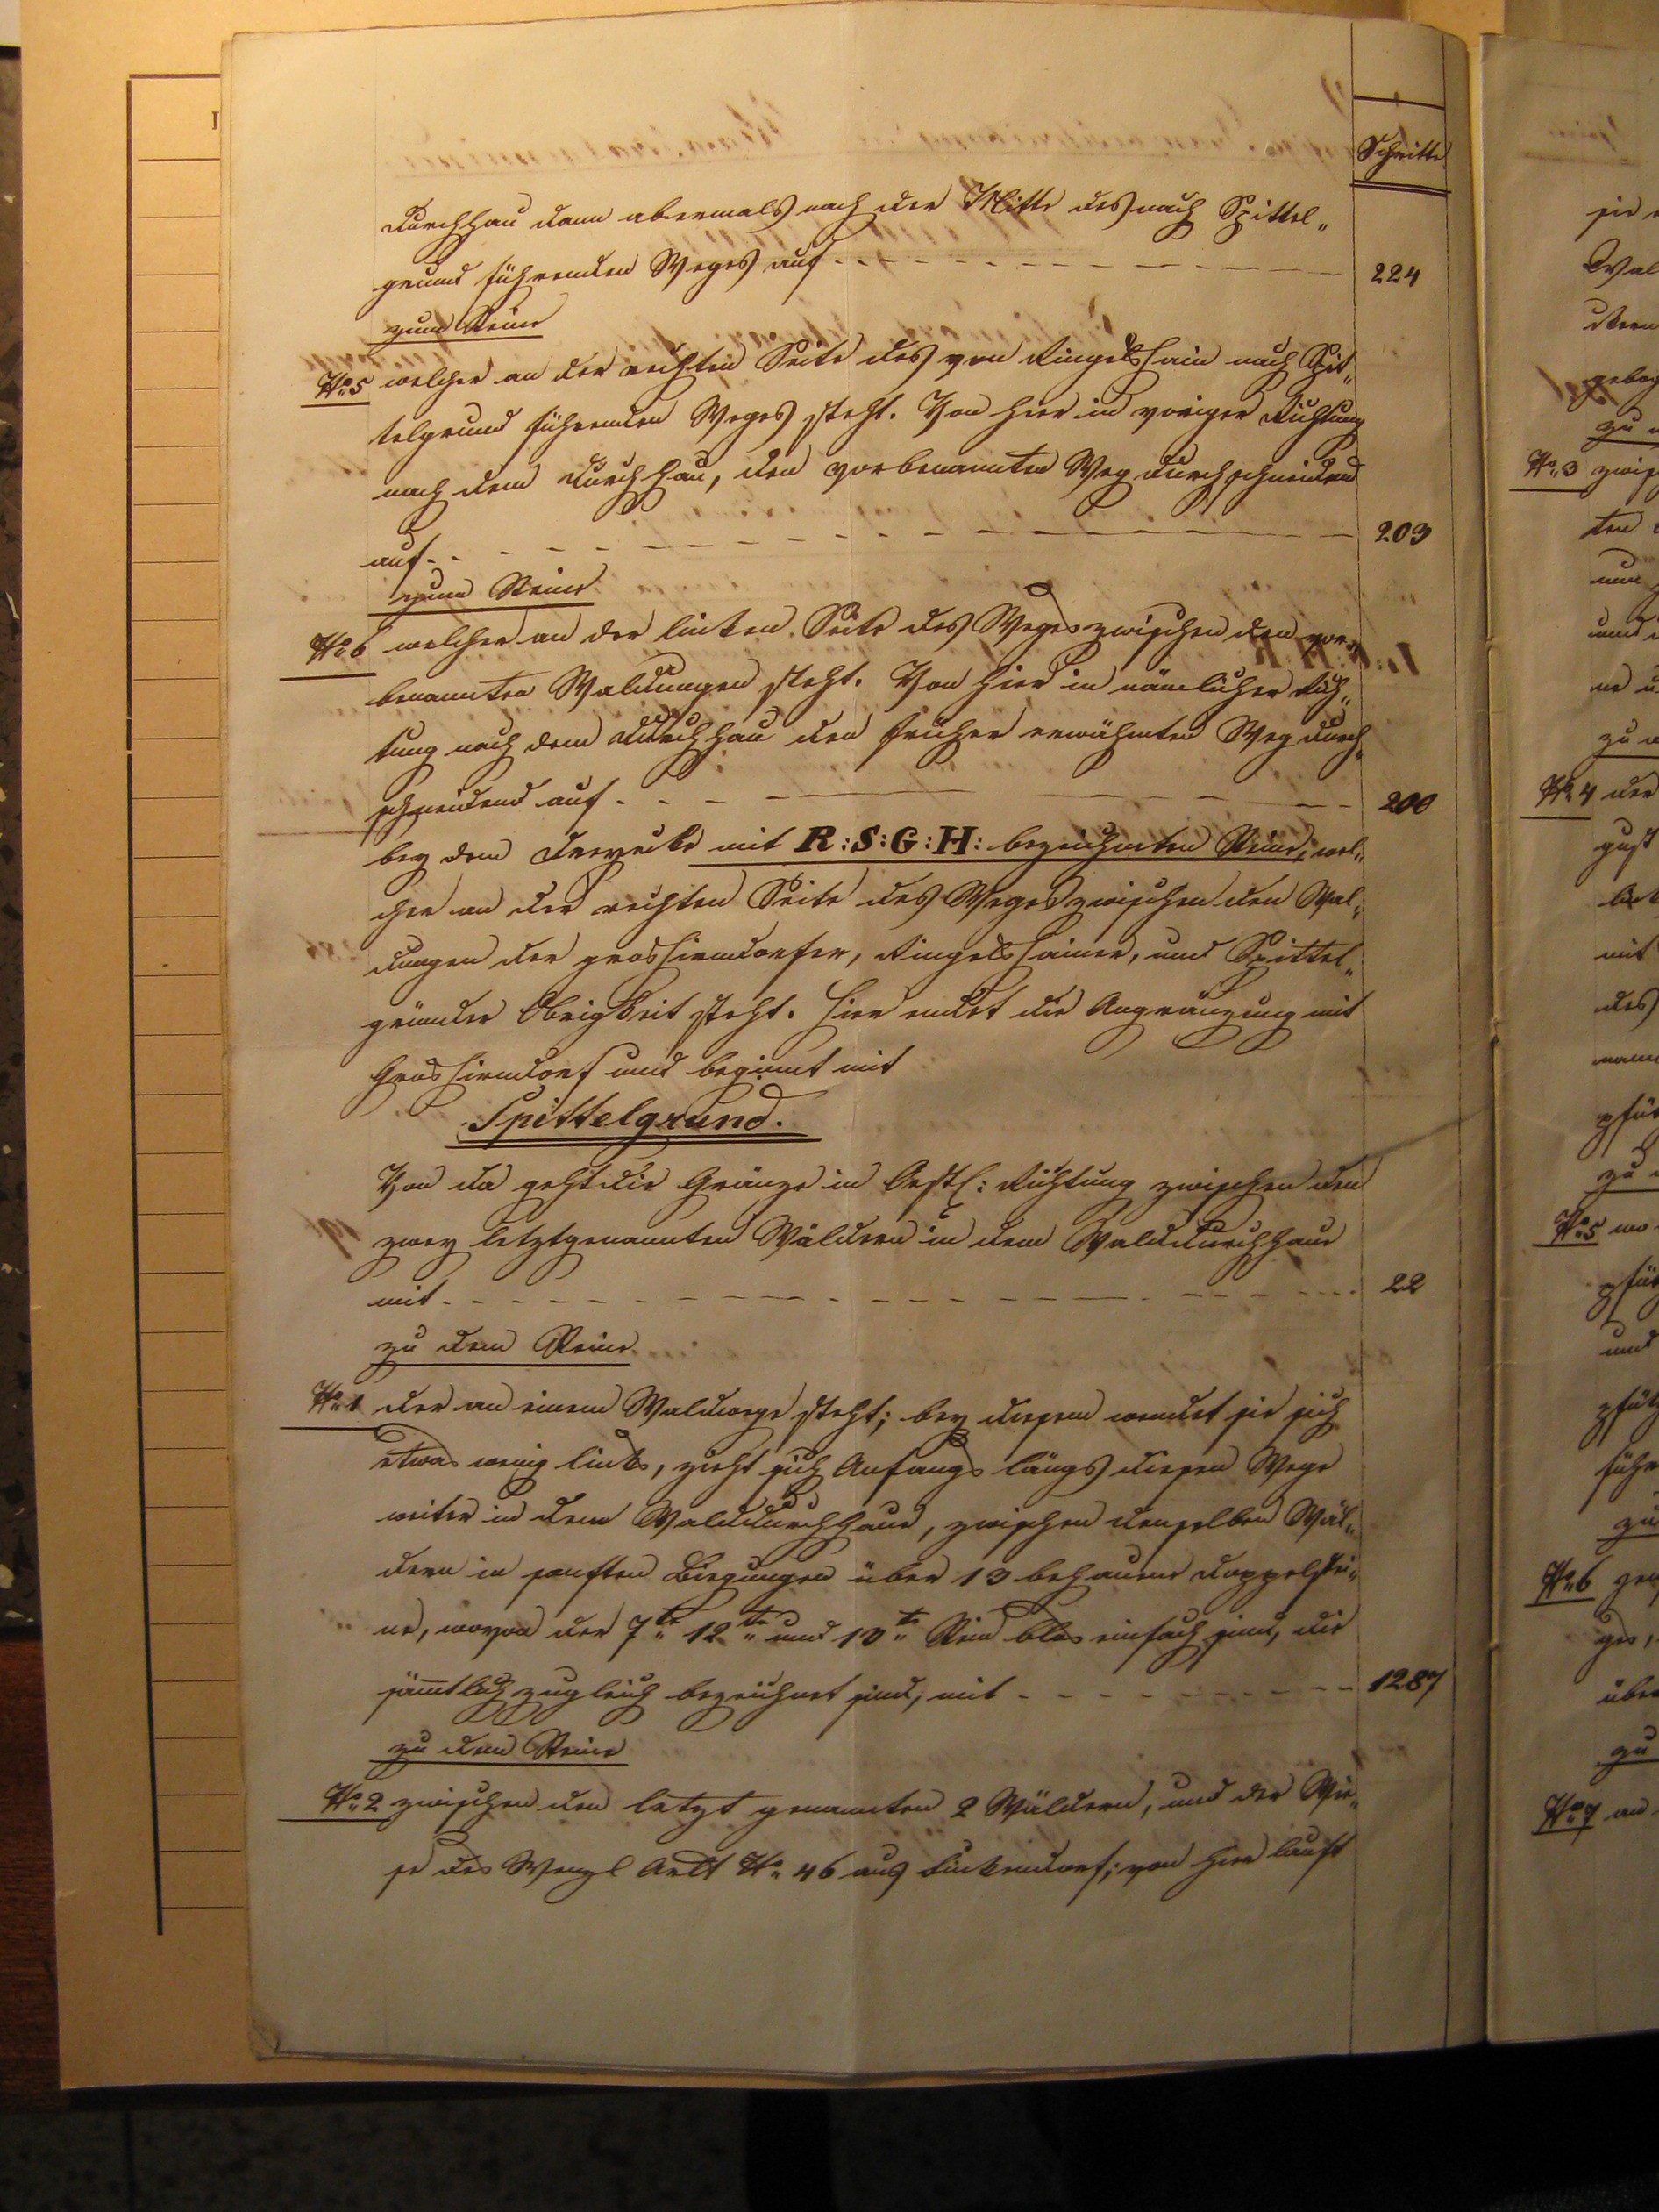 Schritte
Durchhau dann abermals nach der Mitte des nach Spittel„
grund führenden Weges auf - - - 224
zum Steine
No 5 welcher an der rechten Seite des von Ringelshain nach Spit„
telgrund führenden Weges steht. Von hier in voriger Richtung
nach dem Durchhau, den vorbenannten Weg durchschneidend
auf - - - 203
zum Steine
No 6 welcher an der linken Seite des Weges zwischen den vor„
benannten Waldungen steht. Von hier in nämlicher Rich„
tung nach dem Durchhau den früher erwähnten Weg durch„
schneidend auf - - - 200
bey dem Dreyecke mit R:S:G:H: bezeichneten Steine, wel„
cher an der rechten Seite des Weges zwischen den Wal„
dungen der grosshirndorfer, Ringelshainer, und Spittel„
gründer Obrigkeit steht. Hier endet die Angränzung mit
Grosshirndorf und beginnt mit
Spittelgrund.
Von da geht die Gränze in Oestl: Richtung zwischen den
zwey letztgenannten Wäldern in dem Walddurchhaue
mit - - - 22
zu dem Steine
No 1 der an einem Waldwege steht; bey diesem wendet sie sich
etwas wenig links, zieht sich Anfangs längs diesen Wege
weiter in dem Walddurchhaue, zwischen denselben Wäl„
dern in sanften Biegungen über 13 behauene Doppelstei„
ne, wovon der 7te 12te und 13te Stein blos einfach sind, die
sämtlich zugleich bezeichnet sind, mit - - - 1287
zu dem Steine
No 2 zwischen den letzt genannten 2 Wäldern, und der Wie„
se des Wenzl Arlt No 46 aus Lückendorf; von hier lauft
No 3
No 4 der
No 5 wo
No 6
No 7 an